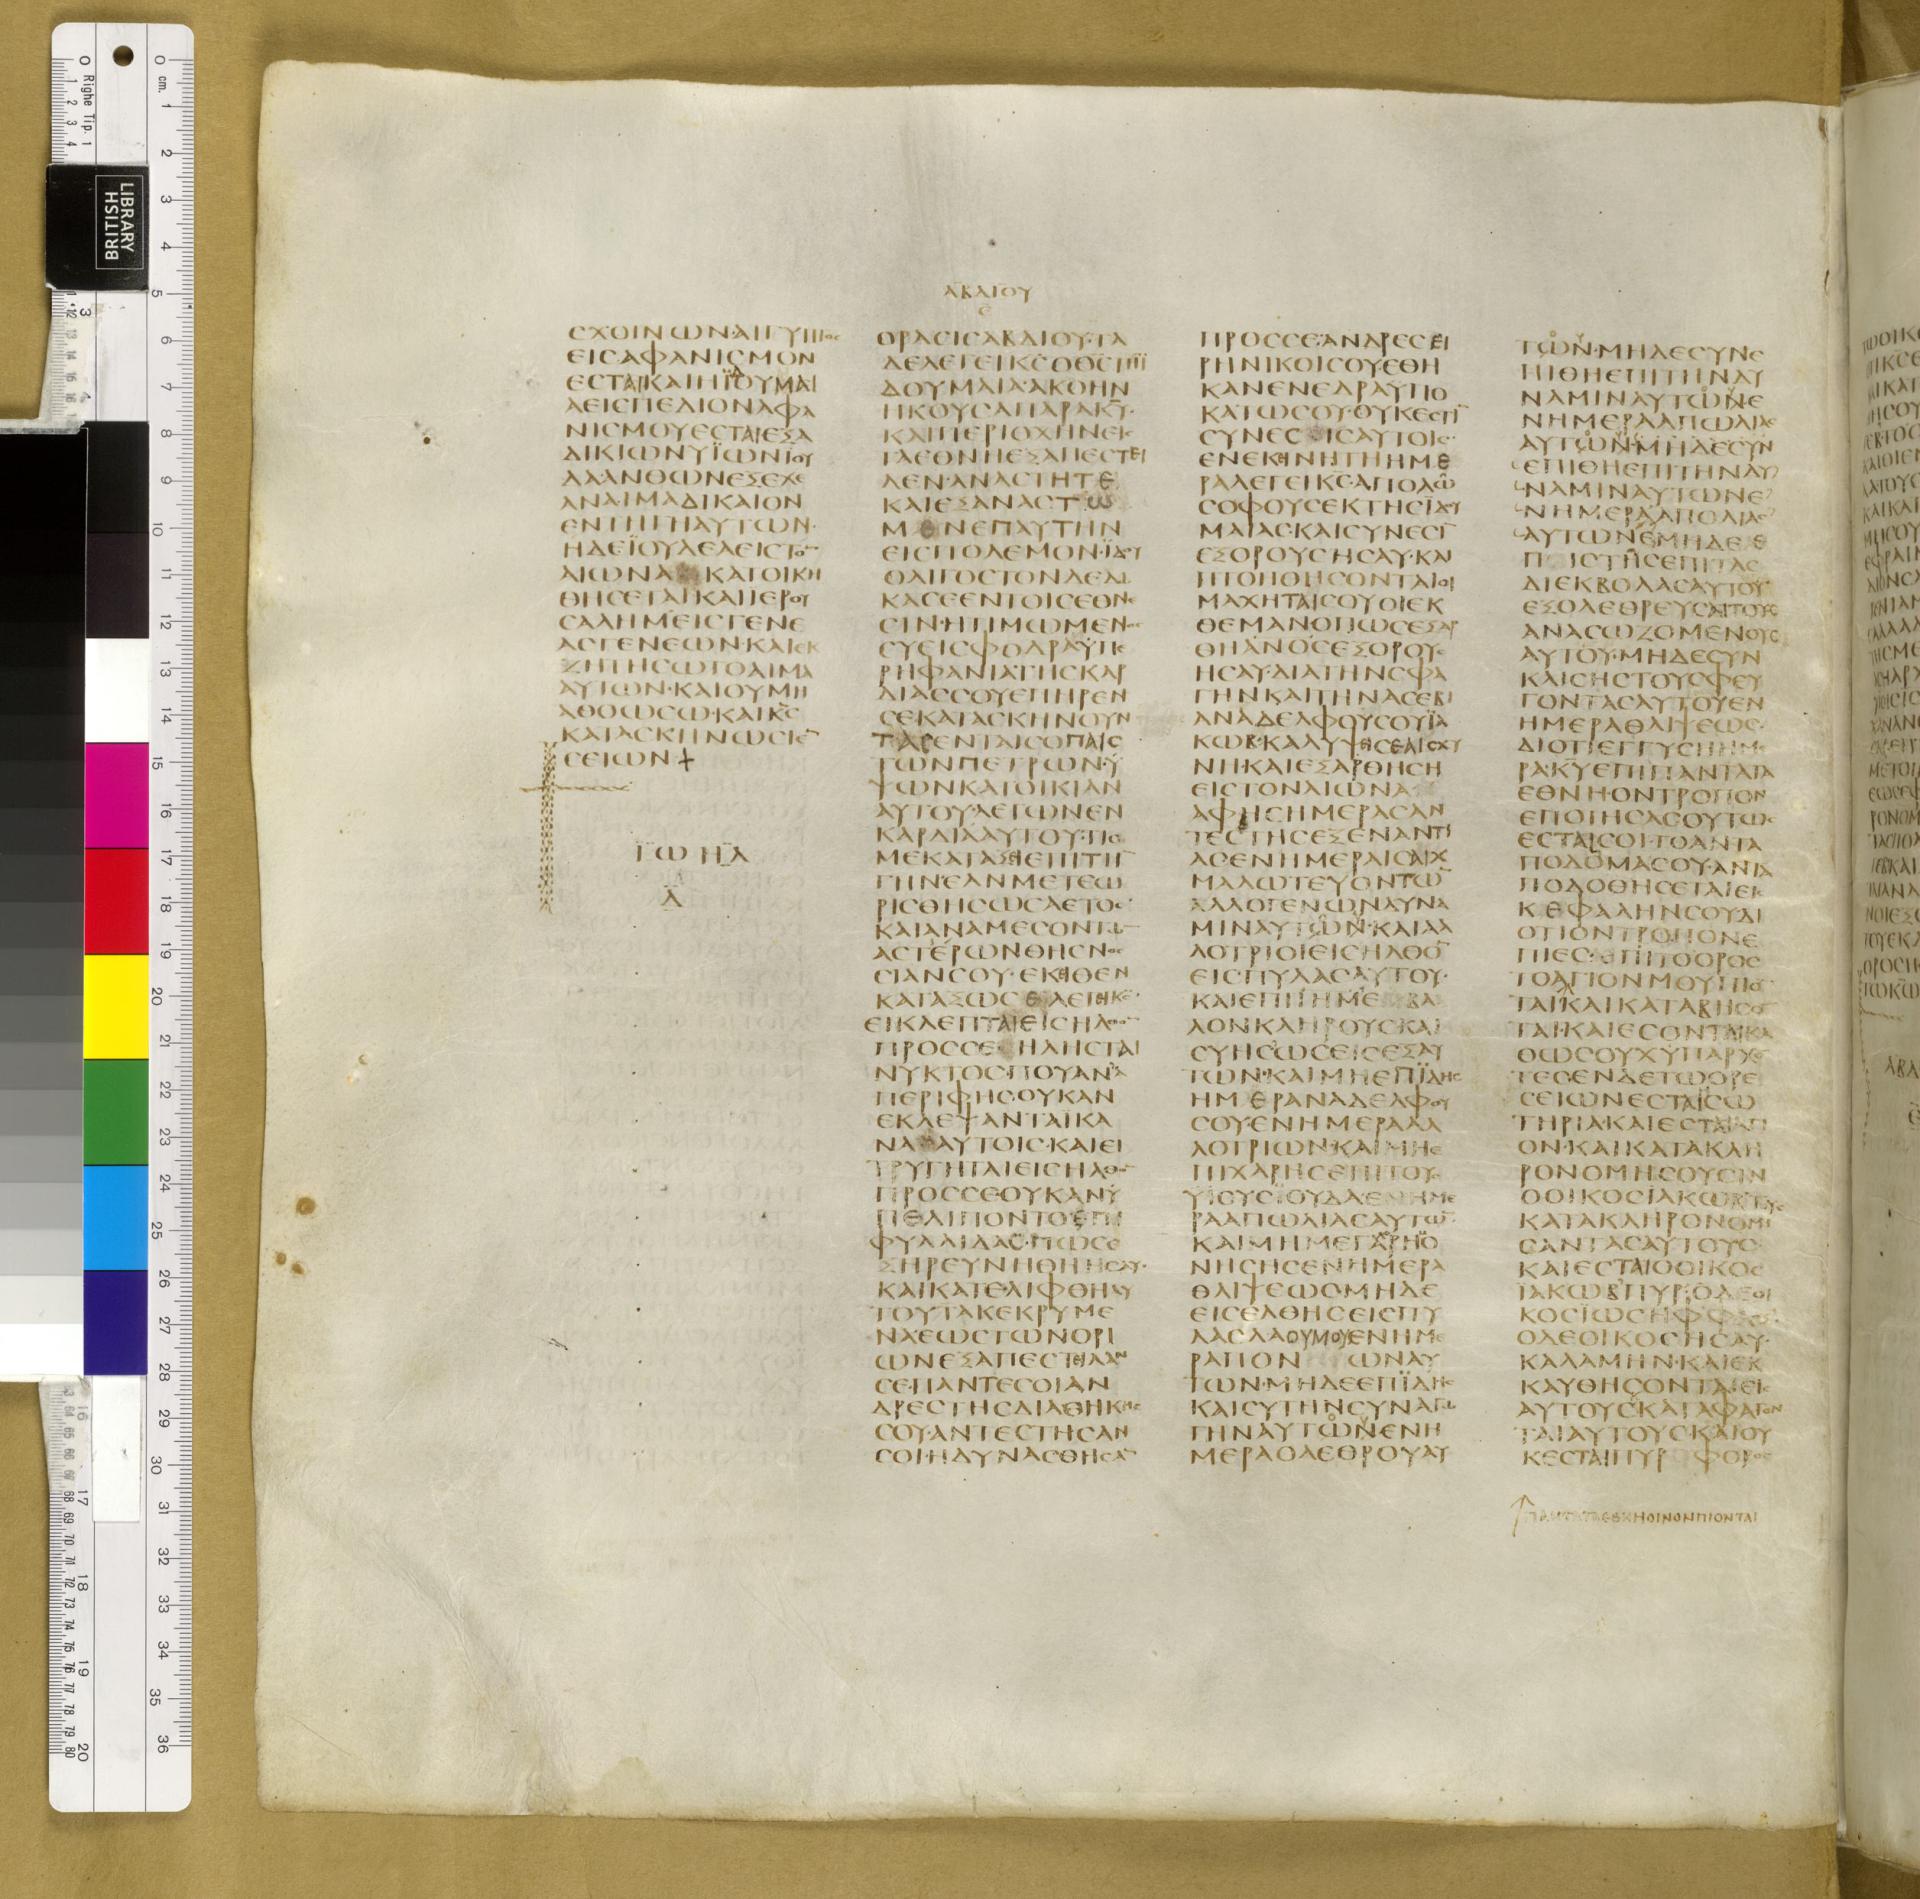 ΑΒΔΙΟΥ
ΣΧΟΙΝΩΝ·ΑΙΓΥΠΤΟϹ
ΕΙϹΑΦΑΝΙϹΜΟΝ
ΕϹΤΑΙΚΑΙΗΪΔΟΥΜΑΙ
ΑΕΙϹΠΕΔΙΟΝΑΦΑ
ΝΙϹΜΟΥΕϹΤΑΙΕΞΑ
ΔΙΚΙΩΝΥΪΩΝΪΟΥ
ΔΑ·ΑΝΘΩΝΕΞΕΧΕ
ΑΝΑΙΜΑΔΙΚΑΙΟΝ
ΕΝΤΗΓΗΑΥΤΩΝ·
ΗΔΕΪΟΥΔΕΑΕΙϹΤΟ̅
ΑΙΩΝΑ ΚΑΤΟΙΚΗ
ΘΗϹΕΤΑΙΚΑΙΙΕΡΟΥ
ϹΑΛΗΜΕΙϹΓΕΝΕ
ΑϹΓΕΝΕΩΝ·ΚΑΙΕΚ
ΖΗΤΗϹΩΤΟΑΙΜΑ
ΑΥΤΩΝ·ΚΑΙΟΥΜΗ
ΑΘΟΩϹΩ·ΚΑΙΚ̅Ϲ̅
ΚΑΤΑϹΚΗΝΩϹΙΕ̅
ϹΕΙΩΝ
ΪΩΗΛ
Δ̅
ΟΡΑϹΙϹΑΒΔΙΟΥ·ΤΑ
ΔΕΛΕΓΕΙΚ̅Ϲ̅ΟΘ̅Ϲ̅ΤΗΪ
ΔΟΥΜΑΙΑ·ΑΚΟΗΝ
ΗΚΟΥϹΑΠΑΡΑΚ̅Υ̅·
ΚΑΙΠΕΡΙΟΧΗΝΕΙϹ
ΤΑΕΘΝΗΕΞΑΠΕϹΤΕΙ
ΛΕΝ·ΑΝΑϹΤΗΤΕ
ΚΑΙΕΞΑΝΑϹΤΩ
ΜΕΝΕΠΑΥΤΗΝ
ΕΙϹΠΟΛΕΜΟΝ·ΪΔΟΥ
ΟΛΙΓΟϹΤΟΝΔΕΔΩ
ΚΑϹΕΕΝΤΟΙϹΕΘΝΕ
ϹΙΝ·ΗΤΙΜΩΜΕΝΟϹ
ϹΥΕΙϹΦΟΔΡΑΫΠΕ
ΡΗΦΑΝΙΑΤΗϹΚΑΡ
ΔΙΑϹϹΟΥΕΠΗΡΕΝ
ϹΕΚΑΤΑϹΚΗΝΟΥΝ
ΤΑΕΝΤΑΙϹΟΠΑΙϹ
ΤΩΝΠΕΤΡΩΝ·Ϋ
ΨΩΝΚΑΤΟΙΚΙΑΝ
ΑΥΤΟΥ·ΛΕΓΩΝΕΝ
ΚΑΡΔΙΑΑΥΤΟΥ·ΤΙϹ
ΜΕΚΑΤΑΞΕΙΕΠΙΤΗ̅
ΓΗΝ·ΕΑΝΜΕΤΕΩ
ΡΙϹΘΗϹΩϹΑΕΤΟϹ·
ΚΑΙΑΝΑΜΕϹΟΝΤΩ̅
ΑϹΤΕΡΩΝΘΗϹΝΟϹ
ϹΙΑΝϹΟΥ·ΕΚΕΙΘΕΝ
ΚΑΤΑΞΩϹΕΛΕΓΕΙΚ̅Ϲ̅·
ΕΙΚΛΕΠΤΑΙΕΙϹΗΛΘΟ̅
ΠΡΟϹϹΕ ΗΛΗϹΤΑΙ
ΝΥΚΤΟϹ·ΠΟΥΑΝΑ
ΠΕΡΙΦΗϹ·ΟΥΚΑΝ
ΕΚΛΕΨΑΝΤΑΪΚΑ
ΝΑ ΑΥΤΟΙϹ·ΚΑΙΕΙ
ΤΡΥΓΗΤΑΙΕΙϹΗΛΘΟ̅
ΠΡΟϹϹΕ·ΟΥΚΑΝΫ
ΠΕΛΙΠΟΝΤΟΕΠΙ
ΦΥΛΛΙΔΑϹ·ΠΩϹΕ
ΞΗΡΕΥΝΗΘΗΗϹΑΥ·
ΚΑΙΚΑΤΕΛΙΦΘΗΑΥ
ΤΟΥΤΑΚΕΚΡΥΜΕ
ΝΑ·ΕΩϹΤΩΝΟΡΙ
ΩΝΕΞΑΠΕϹΤΕΙΛΑΝ
ϹΕ·ΠΑΝΤΕϹΟΙΑΝ
ΔΡΕϹΤΗϹΔΙΑΘΗΚΗϹ
ϹΟΥ·ΑΝΤΕϹΤΗϹΑΝ
ϹΟΙ·ΗΔΥΝΑϹΘΗϹΑ̅
ΠΡΟϹϹΕ·ΑΝΔΡΕϹΕΙ
ΡΗΝΙΚΟΙϹΟΥ·ΕΘΗ
ΚΑΝΕΝΕΔΡΑΫΠΟ
ΚΑΤΩϹΟΥ·ΟΥΚΕϹΤΙ̅
ϹΥΝΕϹΙϹΑΥΤΟΙϹ·
ΕΝΕΚΕΙΝΗΤΗΗΜΕ
ΡΑΛΕΓΕΙΚ̅Ϲ̅·ΑΠΟΛΩ
ϹΟΦΟΥϹΕΚΤΗϹΪΔΟΥ
ΜΑΙΑϹ·ΚΑΙϹΥΝΕϹΙ̅
ΕΞΟΡΟΥϹΗϹΑΥ·ΚΑΙ
ΠΤΟΗΘΗϹΟΝΤΑΙΟΙ
ΜΑΧΗΤΑΙϹΟΥΟΙΕΚ
ΘΕΜΑΝΟΠΩϹΕΞΑΡ
ΘΗΑΝΟϹΕΞΟΡΟΥϹ
ΗϹΑΥ·ΔΙΑΤΗΝϹΦΑ
ΓΗΝΚΑΙΤΗΝΑϹΕΒΙ
ΑΝΑΔΕΛΦΟΥϹΟΥΪΑ
ΚΩΒ·ΚΑΛΥΨΕΙϹΕΑΙϹΧΥ
ΝΗ·ΚΑΙΕΞΑΡΘΗϹΗ
ΕΙϹΤΟΝΑΙΩΝΑ
ΑΦΗϹΗΜΕΡΑϹΑΝ
ΤΕϹΤΗϹΕΞΕΝΑΝΤΙ
ΑϹΕΝΗΜΕΡΑΙϹΑΙΧ
ΜΑΛΩΤΕΥΟΝΤΩ̅
ΑΛΛΟΓΕΝΩΝΔΥΝΑ
ΜΙΝΑΥΤΩΝ·ΚΑΙΑΛ
ΛΟΤΡΙΟΙΕΙϹΗΛΘΟ̅
ΕΙϹΠΥΛΑϹΑΥΤΟΥ·
ΚΑΙΕΠΙΙΗΜ ΒΑ
ΛΟΝΚΛΗΡΟΥϹΚΑΙ
ϹΥΗϹΩϹΕΙϹΕΞΑΥ
ΤΩΝ·ΚΑΙΜΗΕΠΪΔΗϹ
ΗΜΕΡΑΝΑΔΕΛΦΟΥ
ϹΟΥ·ΕΝΗΜΕΡΑΑΛ
ΛΟΤΡΙΩΝ·ΚΑΙΜΗΕ
ΠΙΧΑΡΗϹΕΠΙΤΟΥϹ
ΥΙΟΥϹΪΟΥΔΑΕΝΗΜΕ
ΡΑΑΠΩΛΙΑϹΑΥΤΩ̅·
ΚΑΙΜΗΜΕΓΑΡΗΟ
ΝΗϹΗϹΕΝΗΜΕΡΑ
ΘΛΙΨΕΩϹ·ΜΗΔΕ
ΕΙϹΕΛΘΗϹΕΙϹΠΥ
ΛΑϹΛΑΟΥΜΟΥΕΝΗΜΕ
ΡΑΠΟΝ ΩΝΑΥ
ΤΩΝ·ΜΗΔΕΕΠΪΔΗϹ
ΚΑΙϹΥΤΗΝϹΥΝΑΓΩ
ΓΗΝΑΥΤΩΝΕΝΗ
ΜΕΡΑΟΛΕΘΡΟΥΑΥ
ΤΩΝ·ΜΗΔΕϹΥΝΕ
ΠΙΘΗΕΠΙΤΗΝΔΥ
ΝΑΜΙΝΑΥΤΩΝΕ
ΝΗΜΕΡΑΑΠΩΛΙΑϹ
ΑΥΤΩΝΜΗΔΕϹΥΝ
ΕΠΙΘΗΕΠΙΤΗΝΔΥ
ΝΑΜΙΝΑΥΤΩΝΕ
ΝΗΜΕΡΑΑΠΟΛΙΑϹ
ΑΥΤΩΝΕΜΗΔΕΕ
Π ΙϹΤΗϹΕΠΙΤΑϹ
ΔΙΕΚΒΟΛΑϹΑΥΤΟΥ
ΕΞΟΛΕΘΡΕΥϹΑΙΤΟΥϹ
ΑΝΑϹΩΖΟΜΕΝΟΥϹ
ΑΥΤΟΥ·ΜΗΔΕϹΥΝ
ΚΛΙϹΗϹΤΟΥϹΦΕΥ
ΓΟΝΤΑϹΑΥΤΟΥΕΝ
ΗΜΕΡΑΘΛΙΨΕΩϹ·
ΔΙΟΤΙΕΓΓΥϹΗΗΜΕ
ΡΑ·Κ̅Υ̅ΕΠΙΠΑΝΤΑΤΑ
ΕΘΝΗ·ΟΝΤΡΟΠΟΝ
ΕΠΟΙΗϹΑϹΟΥΤΩϹ
ΕϹΤΑΙϹΟΙ·ΤΟΑΝΤΑ
ΠΟΔΟΜΑϹΟΥ·ΑΝΤΑ
ΠΟΔΟΘΗϹΕΤΑΙΕΙϹ
ΚΕΦΑΛΗΝϹΟΥΔΙ
ΟΤΙΟΝΤΡΟΠΟΝΕ
ΠΙΕϹ·ΕΠΙΤΟΟΡΟϹ
ΤΟΑΓΙΟΝΜΟΥΠΙΟ̅
ΤΑΙΚΑΙΚΑΤΑΒΗϹΟ̅
ΤΑΙ·ΚΑΙΕϹΟΝΤΑΙΚΑ
ΘΩϹΟΥΧΫΠΑΡΧΟ̅
ΤΕϹ·ΕΝΔΕΤΩΟΡΕΙ
ϹΕΙΩΝΕϹΤΑΙϹΩ
ΤΗΡΙΑ·ΚΑΙΕϹΤΑΙΑΓΙ
ΟΝ·ΚΑΙΚΑΤΑΚΛΗ
ΡΟΝΟΜΗϹΟΥϹΙΝ
ΟΟΙΚΟϹΪΑΚΩΒΤΟΥϹ
ΚΑΤΑΚΛΗΡΟΝΟΜΗ
ϹΑΝΤΑϹΑΥΤΟΥϹ·
ΚΑΙΕϹΤΑΙΟΟΙΚΟϹ
ΪΑΚΩΒΠΥΡ·ΟΔΕΟΙ
ΚΟϹΪΩϹΗΦΦΛΟΞ·
ΟΔΕΟΙΚΟϹΗϹΑΥ·
ΚΑΛΑΜΗΝ·ΚΑΙΕΚ
ΚΑΥΘΗϹΟΝΤΑΙΕΙϹ
ΑΥΤΟΥϹΚΑΤΑΦΑΓΟΝ
ΤΑΙΑΥΤΟΥϹΚΑΙΟΥ
ΚΕϹΤΑΙΠΥΡΟΦΟΡΟϹ
ΠΑΝΤΑΤΑΕΘΝΗΟΙΝΟΝΠΙΟΝΤΑΙ
LIBRARY
BRITISH
Righe Tip.
cm.